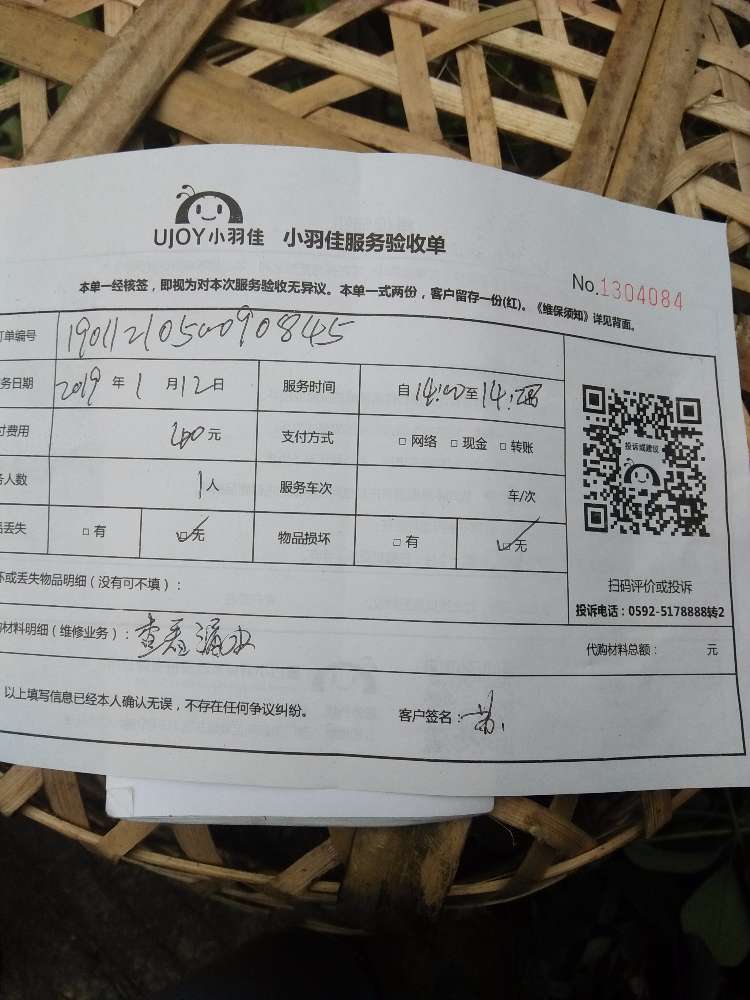 UJOY小羽佳 小羽佳服务验收单
本单一经核签，即视为对本次服务验收无异议。本单一式两份，客户留存一份(红)。《维保须知》详见背面。
No.1304084
订单编号 190112105000090845
务日期 2019 年 1 月 12 日 服务时间 自 14:00 至 14:
付费用 元 支付方式 □ 网络 □ 现金 □ 转账
务人数 1 人 服务车次 车/次
品丢失 □ 有 □ 无 物品损坏 □ 有 □ 无
投诉或建议
坏或丢失物品明细（没有可不填）：
扫码评价或投诉
投诉电话：0592-5178888转2
购材料明细（维修业务）：查看漏水 代购材料总额： 元
以上填写信息已经本人确认无误，不存在任何争议纠纷。 客户签名：